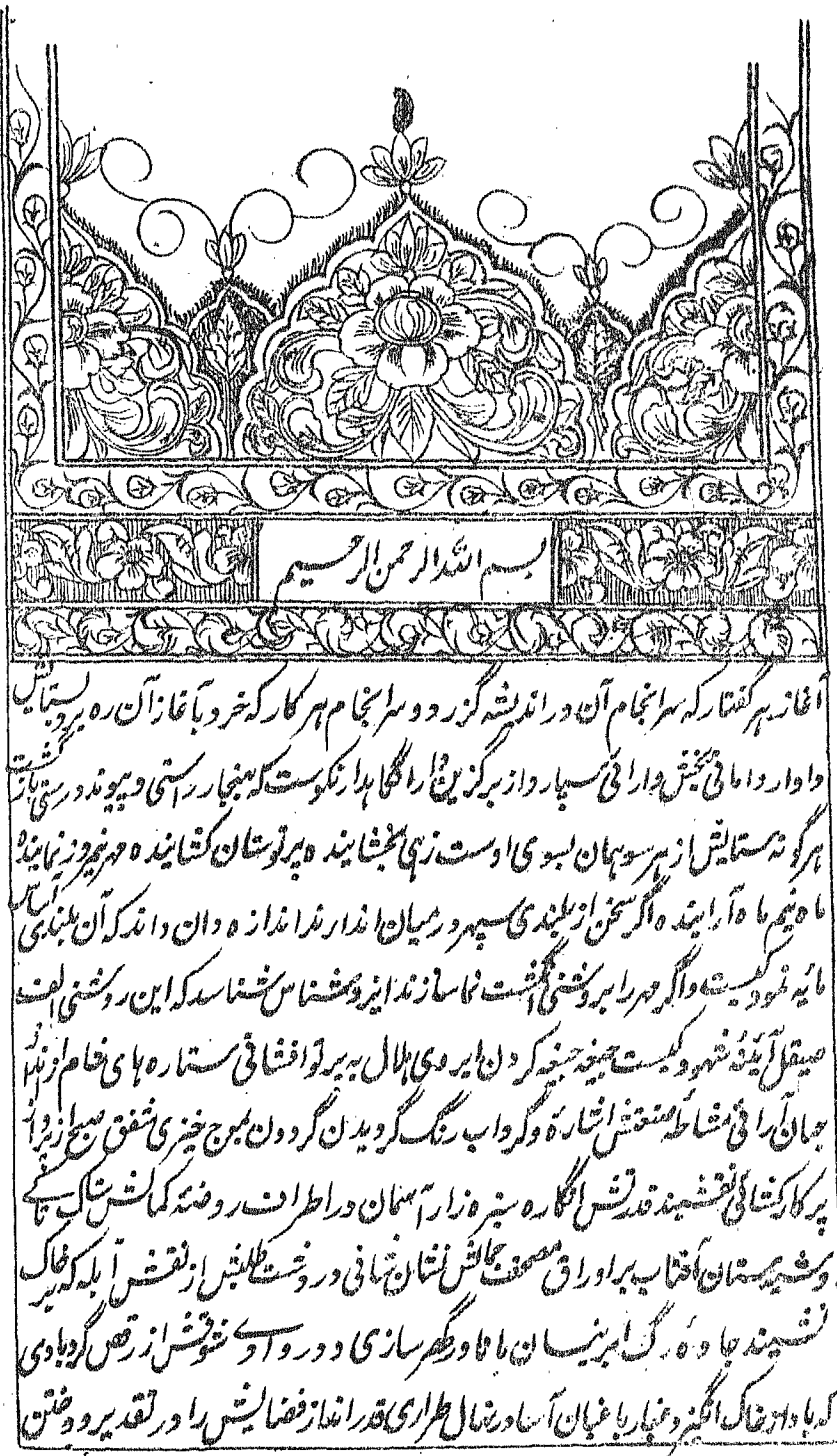 بسم الله الرحمن الرحیم
آغاز هر گفتار که سرانجام آن در اندیشه گزرد و سرانجام هر کار که خرد بآغاز آن ره برد بستایش
داوار دامانی بخش دارائی سپار و از برگزین را نگاهدار نکوست که بهنجار راستی و پیوند درستی بازگشت
هرگونه ستایش از هر سو همان بسوی اوست زهی بخشاینده پرتوستان کشاینده مهر نیمروز نماینده
ماه نیم ماه آراینده اگر سخن از بلندی سپهر درمیان اندازند اندازه دان داند که آن بلندی اساس
مایه نمود کیست و اگر مهر را بروشنی انگشت نما سازند ایزدشناس شناسد که این روشنی الف
صیقل آینه شهود کیست جیغه جیغه کردن ابروی هلال به پرتو افشانی ستاره های فام از انداز
جهان آرائی مشاطه صنعتش اشارة و گرداب رنگ گردیدن گردون بموج خیزی شفق صبح از پرواز
پرکار کشائی نقشبند قدرتش انگاره سبزه زار آسمان در اطراف روضه کمالش تاک تاکے
و شبستان آفتاب بر اوراق مصحف جمالش نشان نمانی در دشت طلبش از نقش آبله که بر خاک
نشیند جاده رگ ابر نیسان مانا در گهرسازی و در وادے شوقش از رقص گردبادی
که باد از خاک انگیزد غبار باغبان آسا در نهال طرازی قدر انداز قضایش را در تقدیر و دوختن